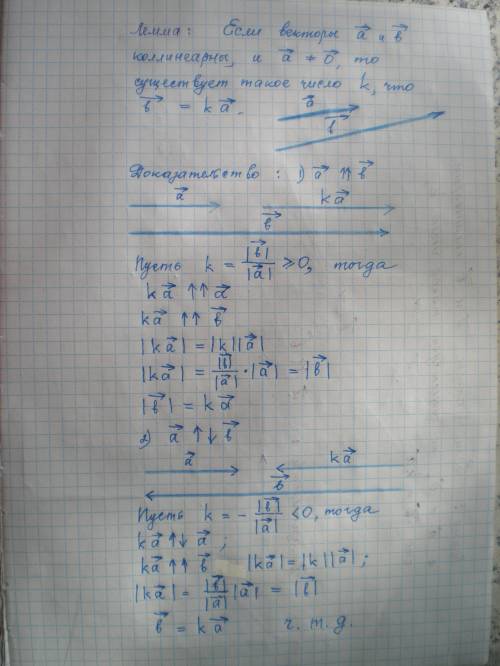 Лемма: Если векторы a⃗ и b⃗
коллинеарны, и a⃗ ≠ 0⃗, то
существует такое число k, что
b⃗ = k a⃗.
a⃗
b⃗
Доказательство: 1) a⃗ ↑↑ b⃗
a⃗ k a⃗
b⃗
Пусть k = |b⃗|/|a⃗| ⩾ 0, тогда
k a⃗ ↑↑ a⃗
k a⃗ ↑↑ b⃗
|k a⃗| = |k||a⃗|
|k a⃗| = |b⃗|/|a⃗| · |a⃗| = |b⃗|
|b⃗| = k a⃗
2) a⃗ ↑↓ b⃗
a⃗ k a⃗
b⃗
Пусть k = - |b⃗|/|a⃗| < 0, тогда
k a⃗ ↑↓ a⃗ ;
k a⃗ ↑↑ b⃗ |k a⃗| = |k||a⃗| ;
|k a⃗| = |b⃗|/|a⃗| |a⃗| = |b⃗|
b⃗ = k a⃗ ч. т. д.